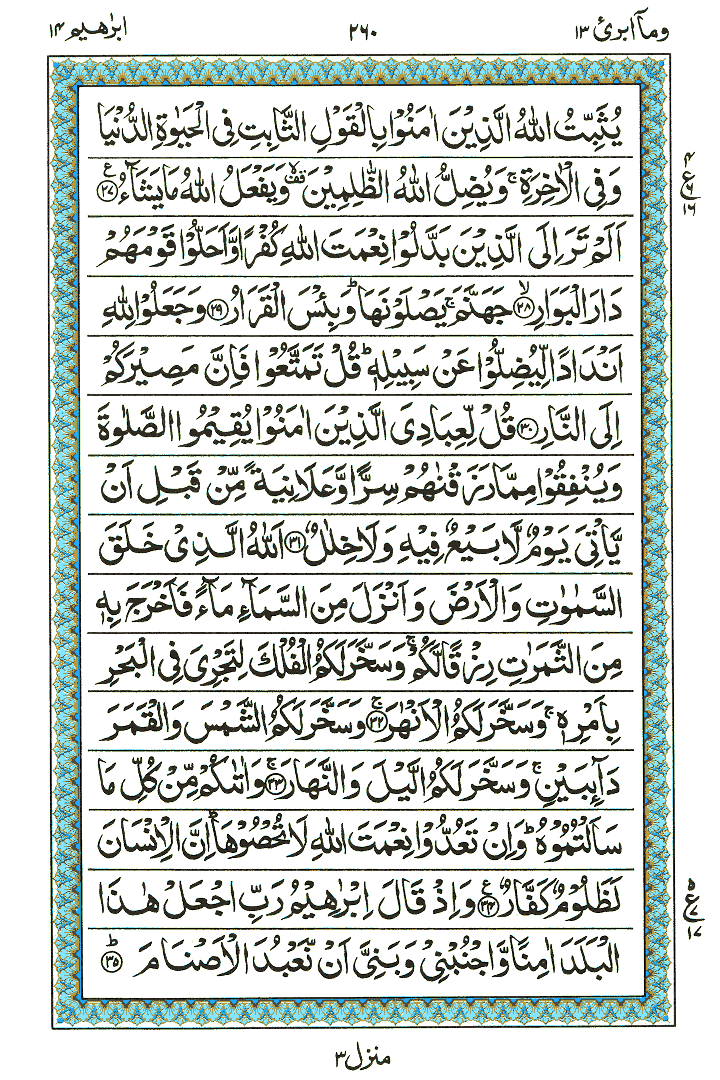 وماۤ ابرئ ١٣
٢٦٠
ابرٰهيم ١٤
يُثَبِّتُ اللّٰهُ الَّذِيْنَ اٰمَنُوْا بِالْقَوْلِ الثَّابِتِ فِى الْحَيٰوةِ الدُّنْيَا
وَفِى الْاٰخِرَةِ ۚ وَيُضِلُّ اللّٰهُ الظّٰلِمِيْنَ ۙ وَيَفْعَلُ اللّٰهُ مَا يَشَآءُ ﴿٢٧﴾ ع
٤
ع
٦
١٦
اَلَمْ تَرَ اِلَى الَّذِيْنَ بَدَّلُوْا نِعْمَتَ اللّٰهِ كُفْرًا وَّاَحَلُّوْا قَوْمَهُمْ
دَارَ الْبَوَارِ ﴿٢٨﴾ۙ جَهَنَّمَ ۚ يَصْلَوْنَهَا ؕ وَبِئْسَ الْقَرَارُ ﴿٢٩﴾ وَجَعَلُوْا لِلّٰهِ
اَنْدَادًا لِّيُضِلُّوْا عَنْ سَبِيْلِهٖ ؕ قُلْ تَمَتَّعُوْا فَاِنَّ مَصِيْرَكُمْ
اِلَى النَّارِ ﴿٣٠﴾ قُلْ لِّعِبَادِىَ الَّذِيْنَ اٰمَنُوْا يُقِيْمُوا الصَّلٰوةَ
وَيُنْفِقُوْا مِمَّا رَزَقْنٰهُمْ سِرًّا وَّعَلَانِيَةً مِّنْ قَبْلِ اَنْ
يَّاْتِىَ يَوْمٌ لَّا بَيْعٌ فِيْهِ وَلَا خِلٰلٌ ﴿٣١﴾ اَللّٰهُ الَّذِىْ خَلَقَ
السَّمٰوٰتِ وَالْاَرْضَ وَاَنْزَلَ مِنَ السَّمَآءِ مَآءً فَاَخْرَجَ بِهٖ
مِنَ الثَّمَرٰتِ رِزْقًا لَّكُمْ ۚ وَسَخَّرَ لَكُمُ الْفُلْكَ لِتَجْرِىَ فِى الْبَحْرِ
بِاَمْرِهٖ ۚ وَسَخَّرَ لَكُمُ الْاَنْهٰرَ ﴿٣٢﴾ۚ وَسَخَّرَ لَكُمُ الشَّمْسَ وَالْقَمَرَ
دَآئِبَيْنِ ۚ وَسَخَّرَ لَكُمُ الَّيْلَ وَالنَّهَارَ ﴿٣٣﴾ۚ وَاٰتٰىكُمْ مِّنْ كُلِّ مَا
سَاَلْتُمُوْهُ ؕ وَاِنْ تَعُدُّوْا نِعْمَتَ اللّٰهِ لَا تُحْصُوْهَا ؕ اِنَّ الْاِنْسَانَ
لَظَلُوْمٌ كَفَّارٌ ﴿٣٤﴾ ع وَاِذْ قَالَ اِبْرٰهِيْمُ رَبِّ اجْعَلْ هٰذَا
٥
ع
٧
١٧
الْبَلَدَ اٰمِنًا وَّاجْنُبْنِىْ وَبَنِىَّ اَنْ نَّعْبُدَ الْاَصْنَامَ ﴿٣٥﴾ؕ
منزل ٣